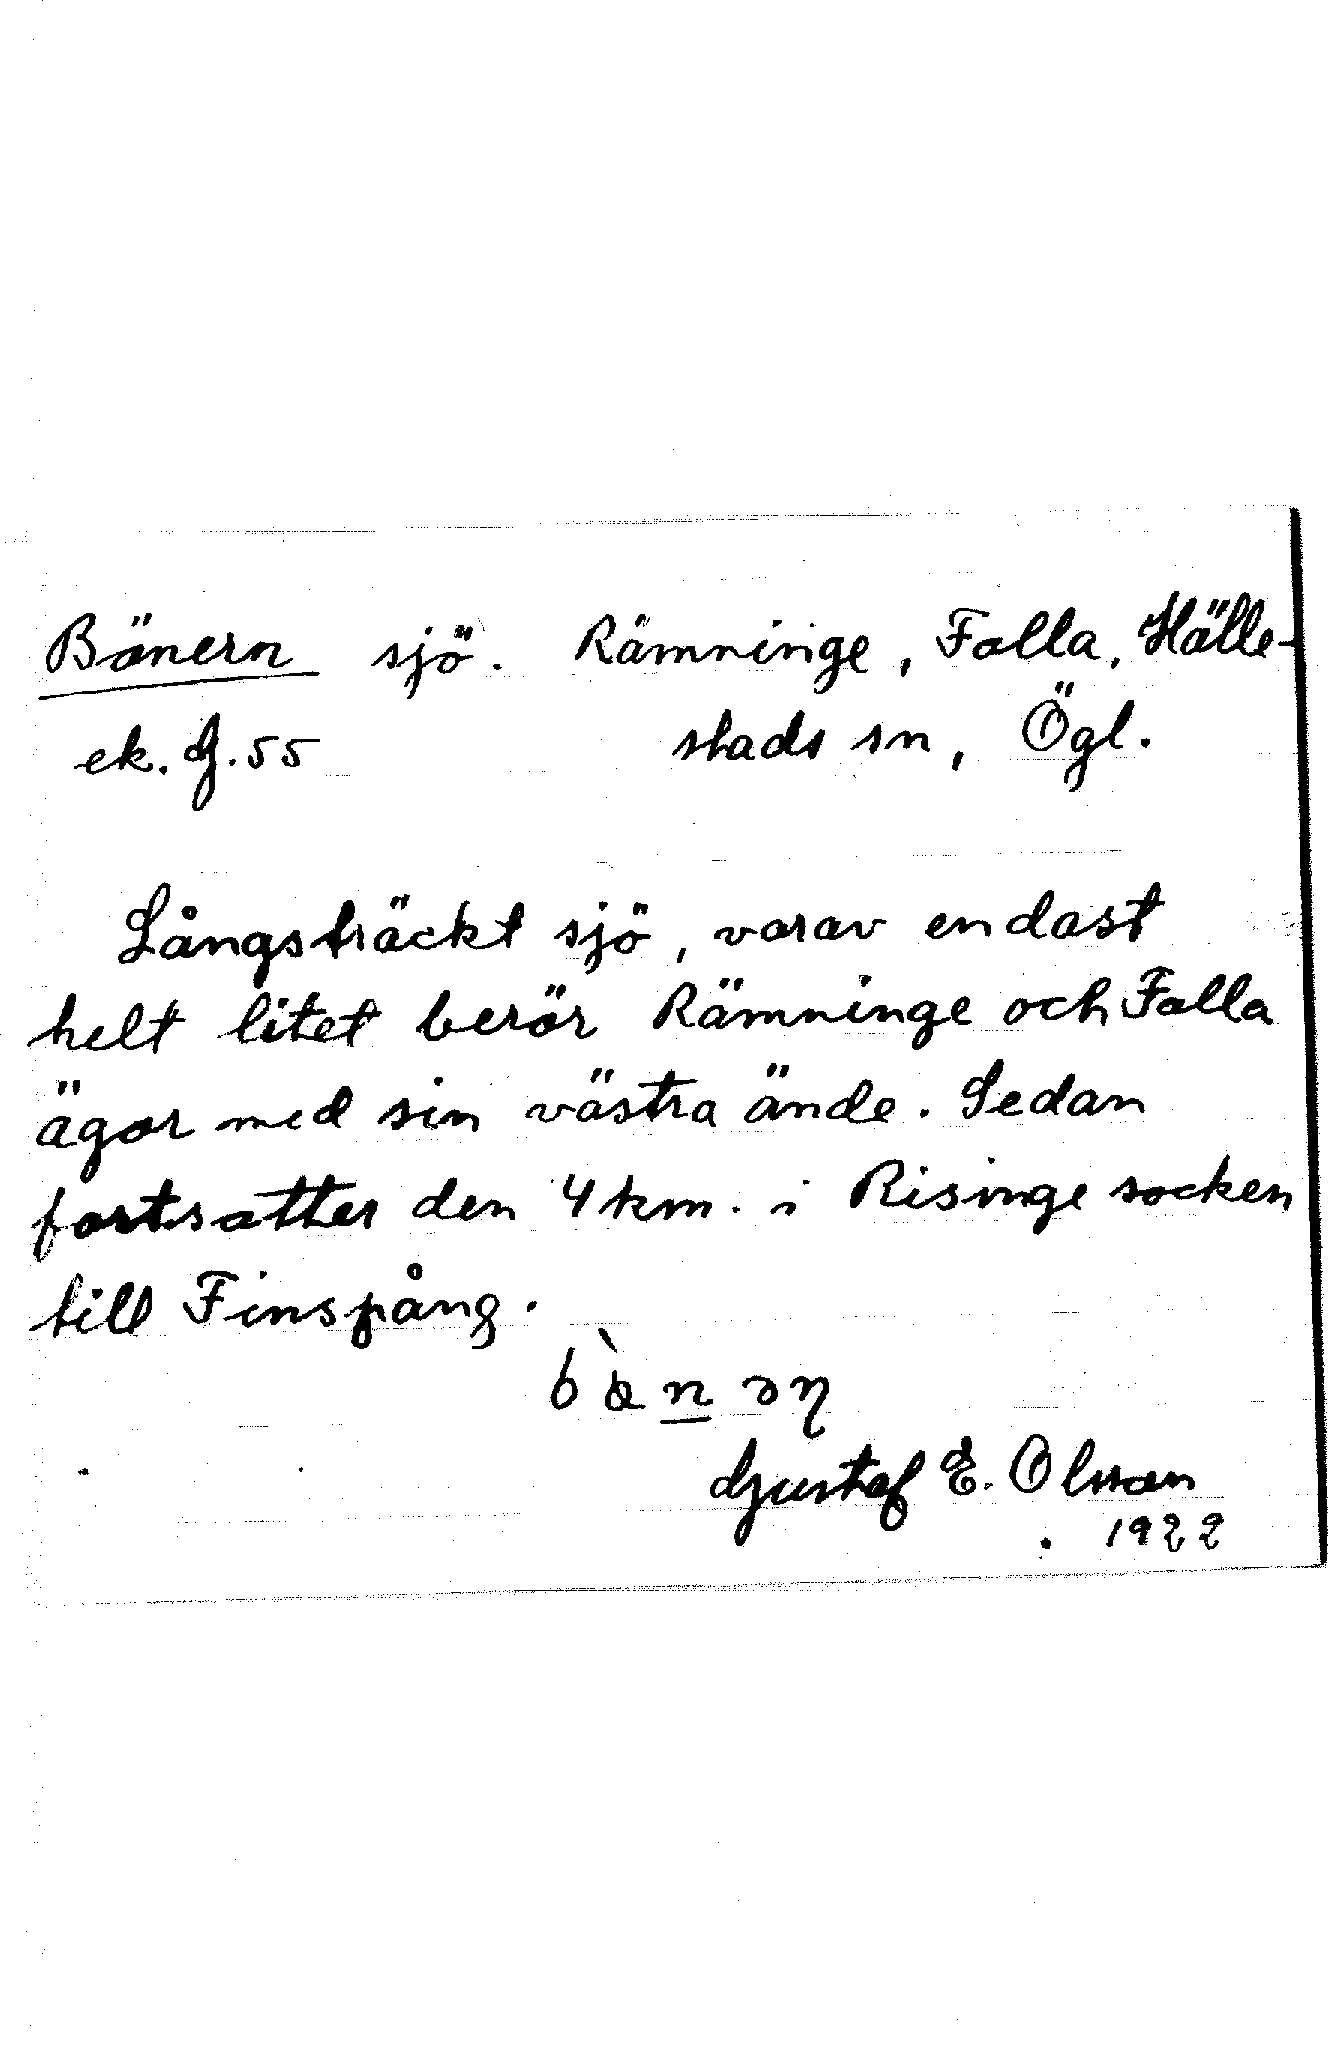 Bönern sjö. Rämninge, Falla, Hälle-
ek. G. 55 stads sn, Ögl.
Långsträckt sjö, varav endast
helt litet berör Rämninge och Falla
ägor med sin västra ände. Sedan
fortsatter den 4 km. i Risinge socken
till Finspång.
Gustaf E. Olsson
1922